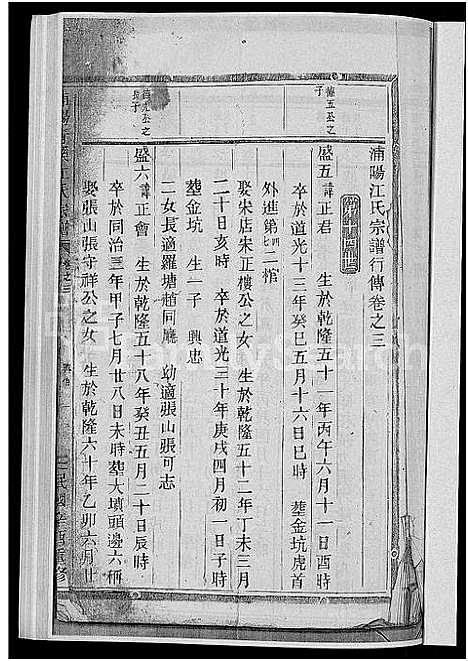 浦陽江氏宗譜行傳卷之三
德五公之
子
盛五諱正君　生於乾隆五十一年丙午六月十一日酉時
卒於道光十三年癸巳五月十六日巳時　塟金坑虎首
外進第四七二棺
娶宋店宋正樓公之女　生於乾隆五十二年丁未三月
二十日亥時　卒於道光三十年庚戌四月初一日子時
塟金坑　生一子　興忠
二女長適羅塘趙同廳　幼適張山張可志
公之
長子
盛六諱正會　生於乾隆五十八年癸丑五月二十日辰時
卒於同治三年甲子七月廿八日未時塟大墳頭邊六稱
娶張山張守祥公之女　生於乾隆六十年乙卯六月廿
江氏宗譜
民國辛酉重修
FamilySearch